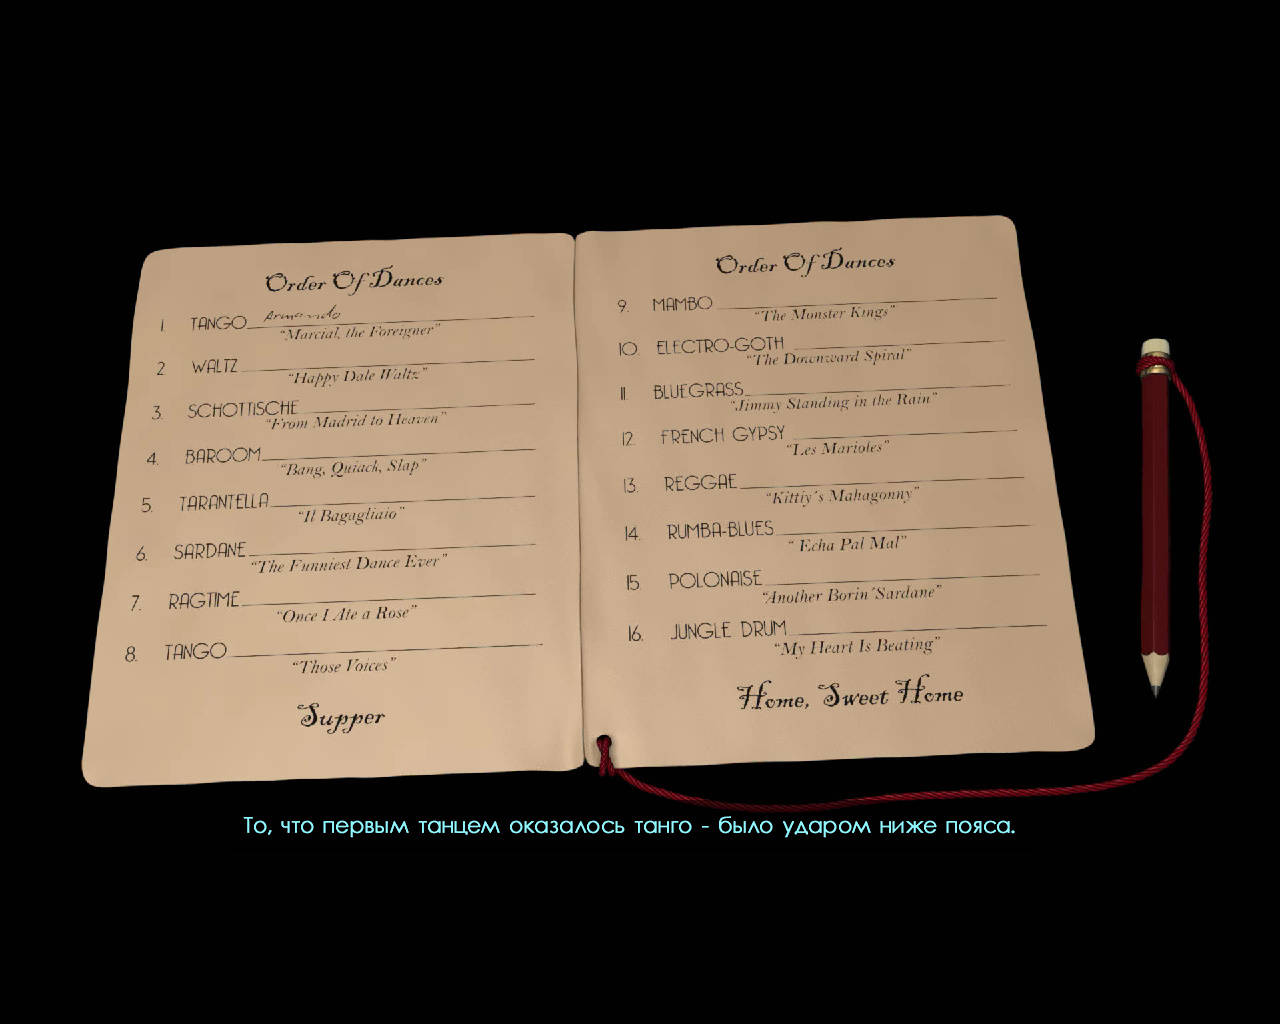 Order Of Dances
1 TANGO Armando
"Marcial, the Foreigner"
2 WALTZ
"Happy Dale Waltz"
3. SCHOTTISCHE
"From Madrid to Heaven"
4. BAROOM
"Bang, Quiack, Slap"
5. TARANTELLA
"Il Bagagliaio"
6. SARDANE
"The Funniest Dance Ever"
7. RAGTIME
"Once I Ate a Rose"
8. TANGO
"Those Voices"
Supper
Order Of Dances
9. MAMBO
"The Monster Kings"
10. ELECTRO-GOTH
"The Downward Spiral"
11. BLUEGRASS
"Jimmy Standing in the Rain"
12. FRENCH GYPSY
"Les Marioles"
13. REGGAE
"Kittiy´s Mahagonny"
14. RUMBA-BLUES
" Echa Pal Mal"
15 POLONAISE
"Another Borin´Sardane"
16. JUNGLE DRUM
"My Heart Is Beating"
Home, Sweet Home
То, что первым танцем оказалось танго - было ударом ниже пояса.